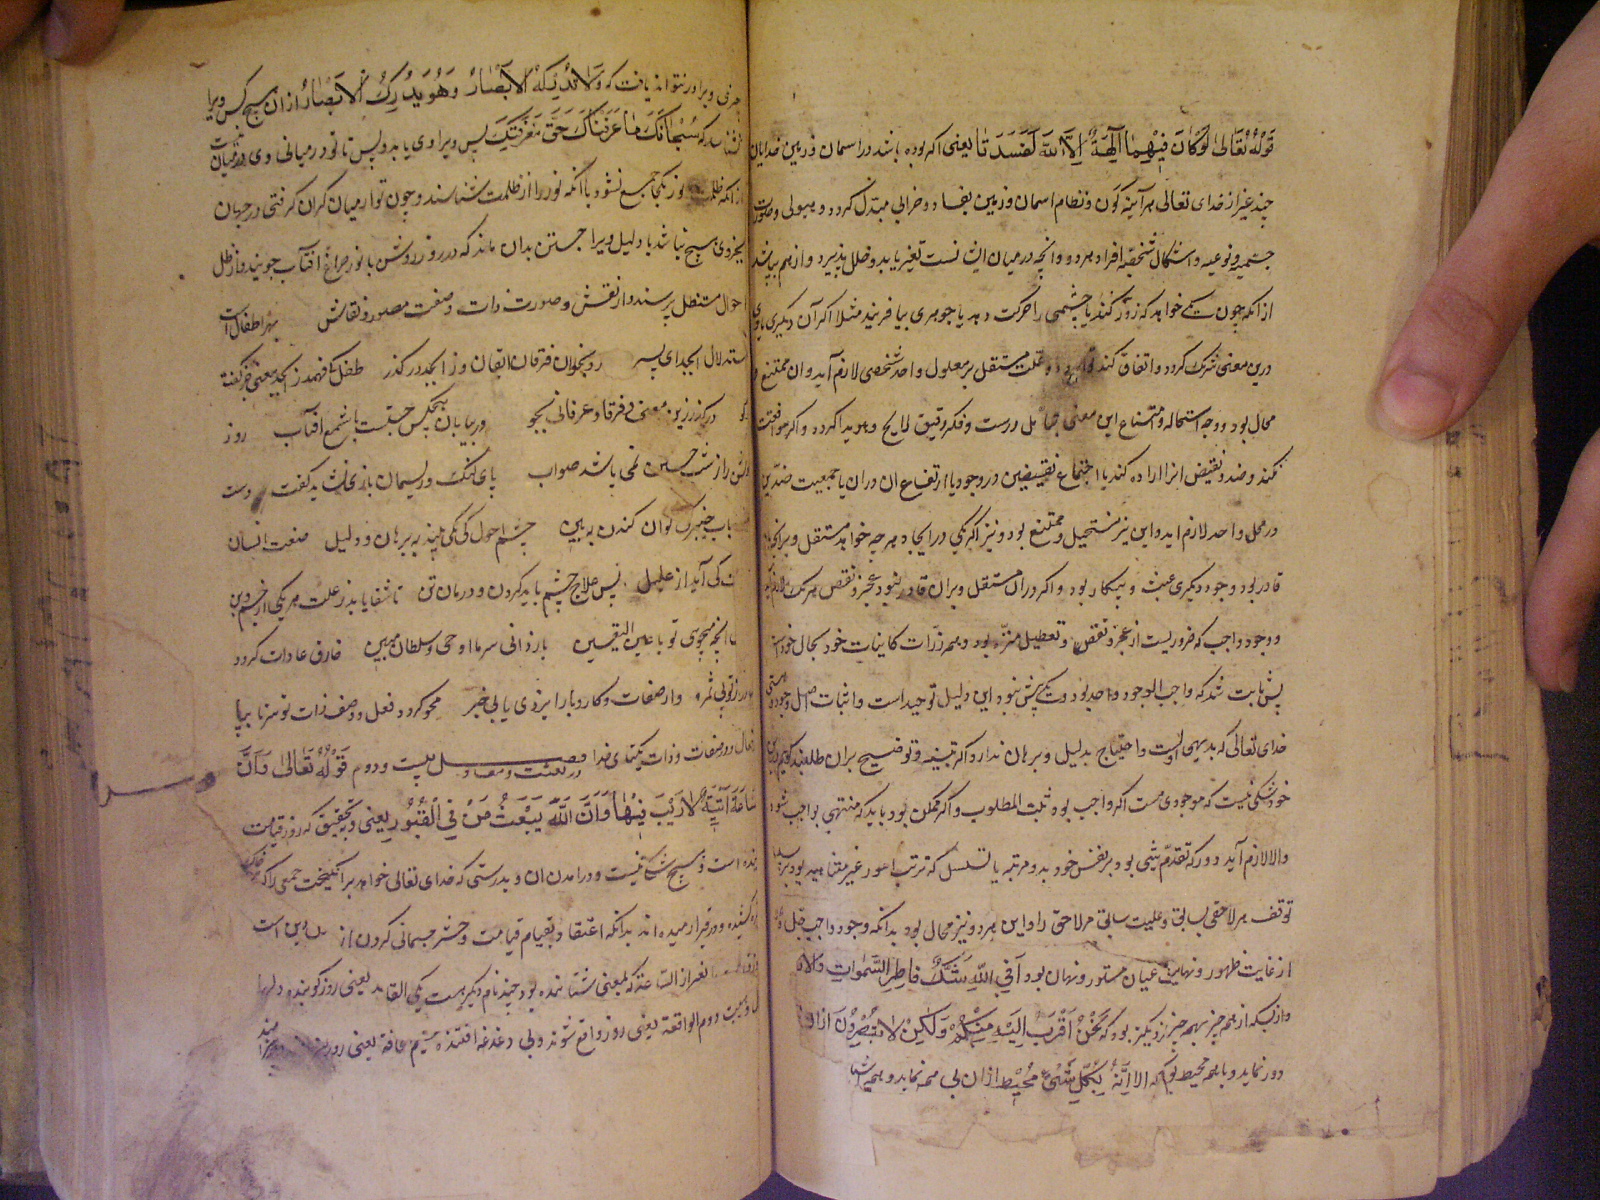 قوله تعالی لوکان فیهما آلهة الا الله لفسدتا یعنی اکر بوده باشد در اسمان و زمین خدایان
چند غیر از خدای تعالی هر آینه کون و نظام اسمان و زمین بفساد و خرابی مبتدل کردد و هیولی و صورت
جسمیه و نوعیه و اشکال شخصیه افراد هر دو و انچه در میان ایشانست تغیر یابد و خلل پذیرد و از هم بپاشد
از انکه چون یکی خواهد که زور کند یا جسمی را حرکت دهد یا جوهری بیافریند مثلا اکر آن دیکری باوی
درین معنی شریک کردد و اتفاق کند توارد دو علت مستقل بر معلول واحد شخصی لازم آید و ان ممتنع و
محال بود و وجه استحاله و امتناع این معنی بتامل درست و فکر دقیق لایح و هویدا کردد و اکر موافقت
نکند و ضد و نقیض انرا اراده کند یا اجتماع نقیضین در وجود یا ارتفاع ان دران یا جمعیت ضدین
در محل واحد لازم اید و این نیز مستحیل و ممتنع بود و نیز اکر یکی در ایجاد هر چه خواهد مستقل و بر انجاد
قادر بود وجود دیکری عبث و بیکار بود و اکر دران مستقل و بران قادر نبود عجز و نقص هر یک لازم آید
و وجود واجب که ضروریست از عجز و نقص و تعطیل منزه بود و همه ذرات کاینات خود بحال خود
پس ثابت شد که واجب الوجود واحد بود و یکی بیش نبود این دلیل توحید است و اثبات اصل وجود
خدای تعالی که بدیهی اولیست و احتیاج بدلیل و برهان ندارد اکر تنبیه و توضیح بران طلبند کویم که در
خود شکی نیست که موجودی هست اکر واجب بود ثبت المطلوب و اگر ممکن بود باید که منتهی بواجب شود
والا لازم آید دور که تقدم شی بود بر نفس خود بدو مرتبه یا تسلسل که ترتب امور غیر متناهیه بود بر
توقف هر لاحقی بسابق و علیت سابق مر لاحق را و این هر دو نیز محال بود بدانکه وجود واجب جل
از غایت ظهور و نهایت عیان مستور و نهان بود أفی الله شک فاطر السموات والا
و از بسکه از همه چیز بهمه چیز نزدیکتر بود که نحن اقرب الیه منکم ولکن لا تبصرون از او
دور نماید و با همه محیط بود که الا انه بکل شیء محیط از ان بی همه نماید و همه
هرنی ویرا در نتواند یافت که ولا تدرکه الابصار وهو یدرک الابصار از ان هیچ کس ویرا
نشناسد که سبحانک ما عرفناک حق معرفتک پس ویرا وی یابد و بس تا تو در میانی وی در میان
از انکه ظلمت نور یکجا جمع نشود با انکه نور را از ظلمت شناسند و چون تو از میان کران کرفتی در جهان
بجز وی هیچ نباشد با دلیل ویرا جستن بدان ماند که در روز روشن با نور چراغ افتاب جویند و از ظل
احوال مستظل پرسند و از نقش و صورت ذات و صفت مصور و نقاش بهر اطفال است
استدلال ابجد ای پسر رو بخوان فرقان ایقان وز ابجد در کذر طفل کی فهمد ز ابجد معنی جز
در کذر زین معنی فرقاد عرفانی بجو در بیابان هیچکس جستست با شمع افتاب روز
روشن را ز شب جستن نمی باشد صواب پای لنک و ریسمان بازی نشاید کفت دست
باب خیبر کی توان کندن به بین چشم احول کی یکی بیند به برهان و دلیل صنعت انسان
کی آید از علیل پس علاج چشم باید کردن و درمان تن تا شفا یابد ز علت هر یکی از جسم و جان
انچه میجویی تو با عین الیقین بارذانی سر ما اوحی و سلطان مبین خارق عادات کردد
روز تو بی ثمر وز صفات و کاروبار ایزدی یابی خبر محو کردد فعل و وصف ذات تو سرتا بپا
افعال و در صفات و ذات یکتای خدا فصل بیست و دوم قوله تعالی وان
در بعثت و معاد
الساعة آتیة لا ریب فیها وان الله یبعث من فی القبور یعنی و بتحقیق که روز قیامت
آینده است و هیچ شکی نیست در آمدن ان و بدرستی که خدای تعالی خواهد برانکیخت جمعی را که
کشیده و در قبر آرمیده اند بدانکه اعتقاد بقیام قیامت و حشر جسمانی کردن از دین است
بغیر از الساعة که بمعنی شتابنده بود چند نام دیکر هست یکی القارعة یعنی روز کوبنده دلها
و هیبت دوم الواقعة یعنی روز واقع شونده و بی دغدغه افتنده سیم خافضة یعنی روز